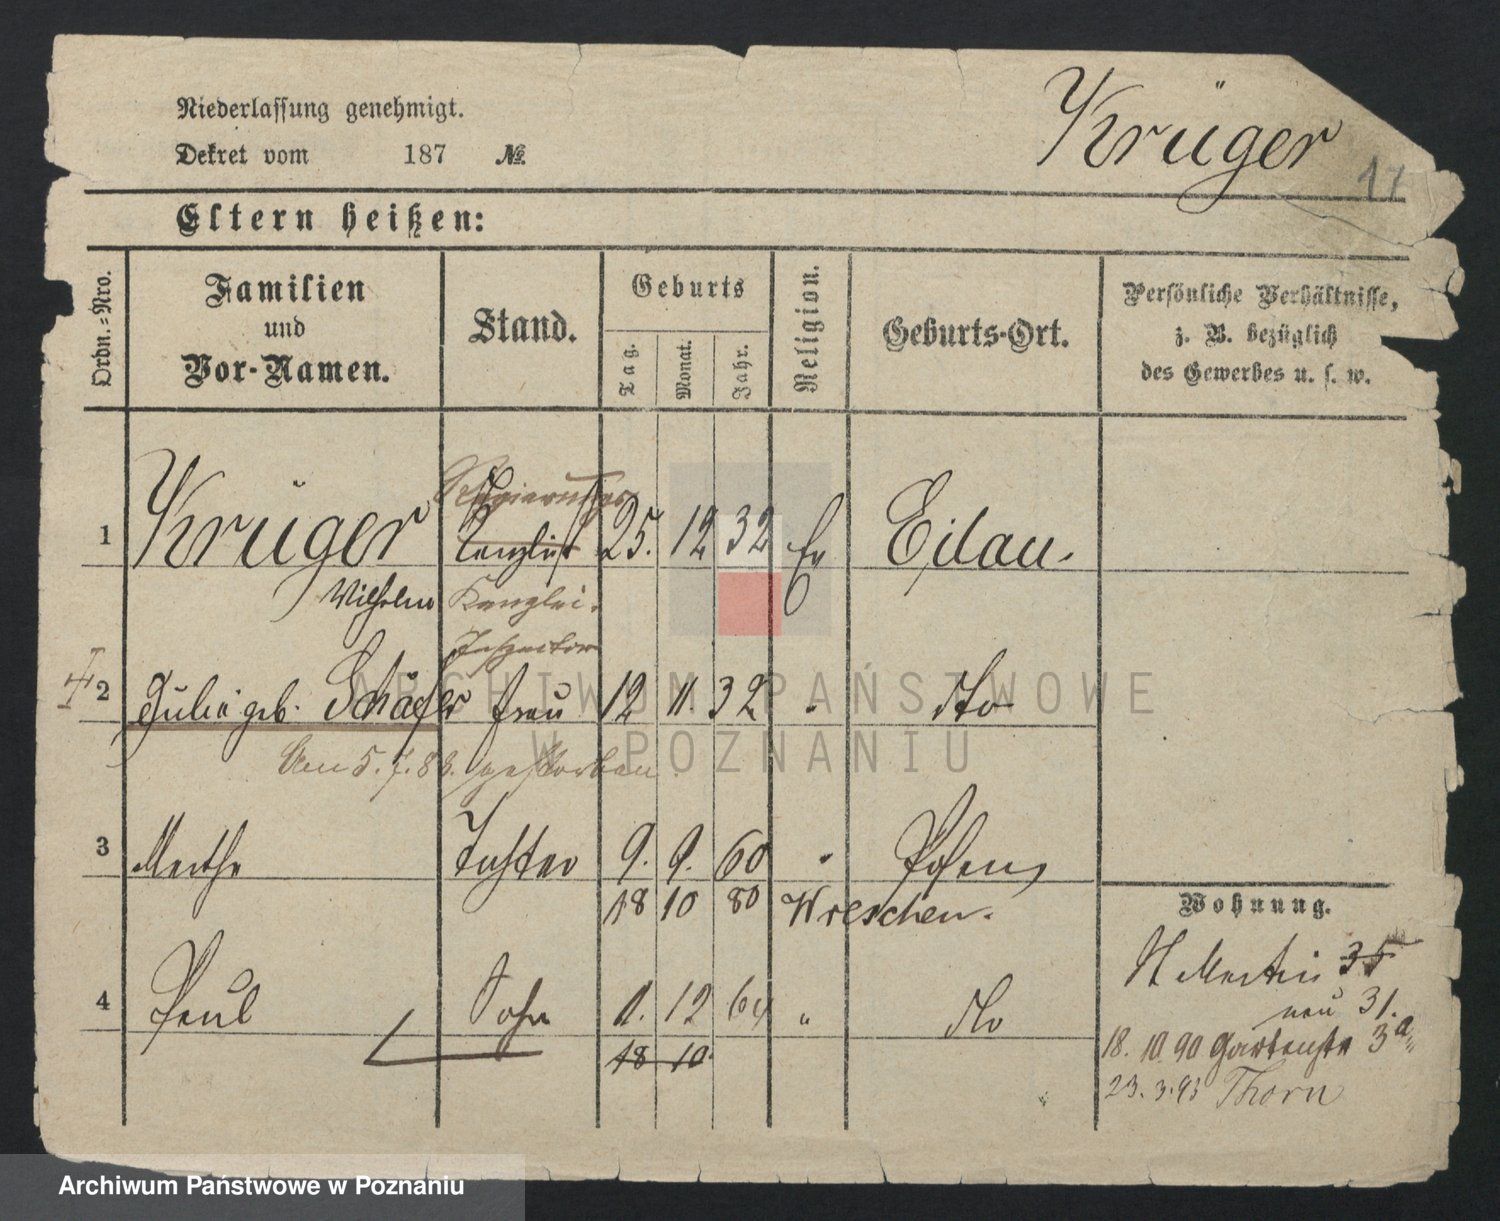 Niederlassung genehmigt.
Krüger
Dekret vom 187 №
17
Eltern heißen:
Ordn.-Nro.
Familien und Vor-Namen.
Stand.
Geburts
Tag.
Monat.
Jahr.
Religion.
Geburts-Ort.
Persönliche Verhältnisse, z. B. bezüglich des Gewerbes u. s. w.
Regierungs
1 Krüger Kanzlist 25. 12 32 Ev Eilau.
Wilhelm Kanzlei-
Inspector
2 Julie geb. Schäfer Frau 12 11. 32 " dto
Am 5. 7. 83. gestorben.
3 Marthe Tochter 9. 9. 60 " Posen
18 10 80 Wreschen.
Wohnung.
St Martin 35
4 Paul Sohn 1. 12 64 " dto
neu 31.
18 10
18. 10 90 Gartenstr 3a
23. 3. 93 Thorn
ARCHIWUM PAŃSTWOWE
W POZNANIU
Archiwum Państwowe w Poznaniu